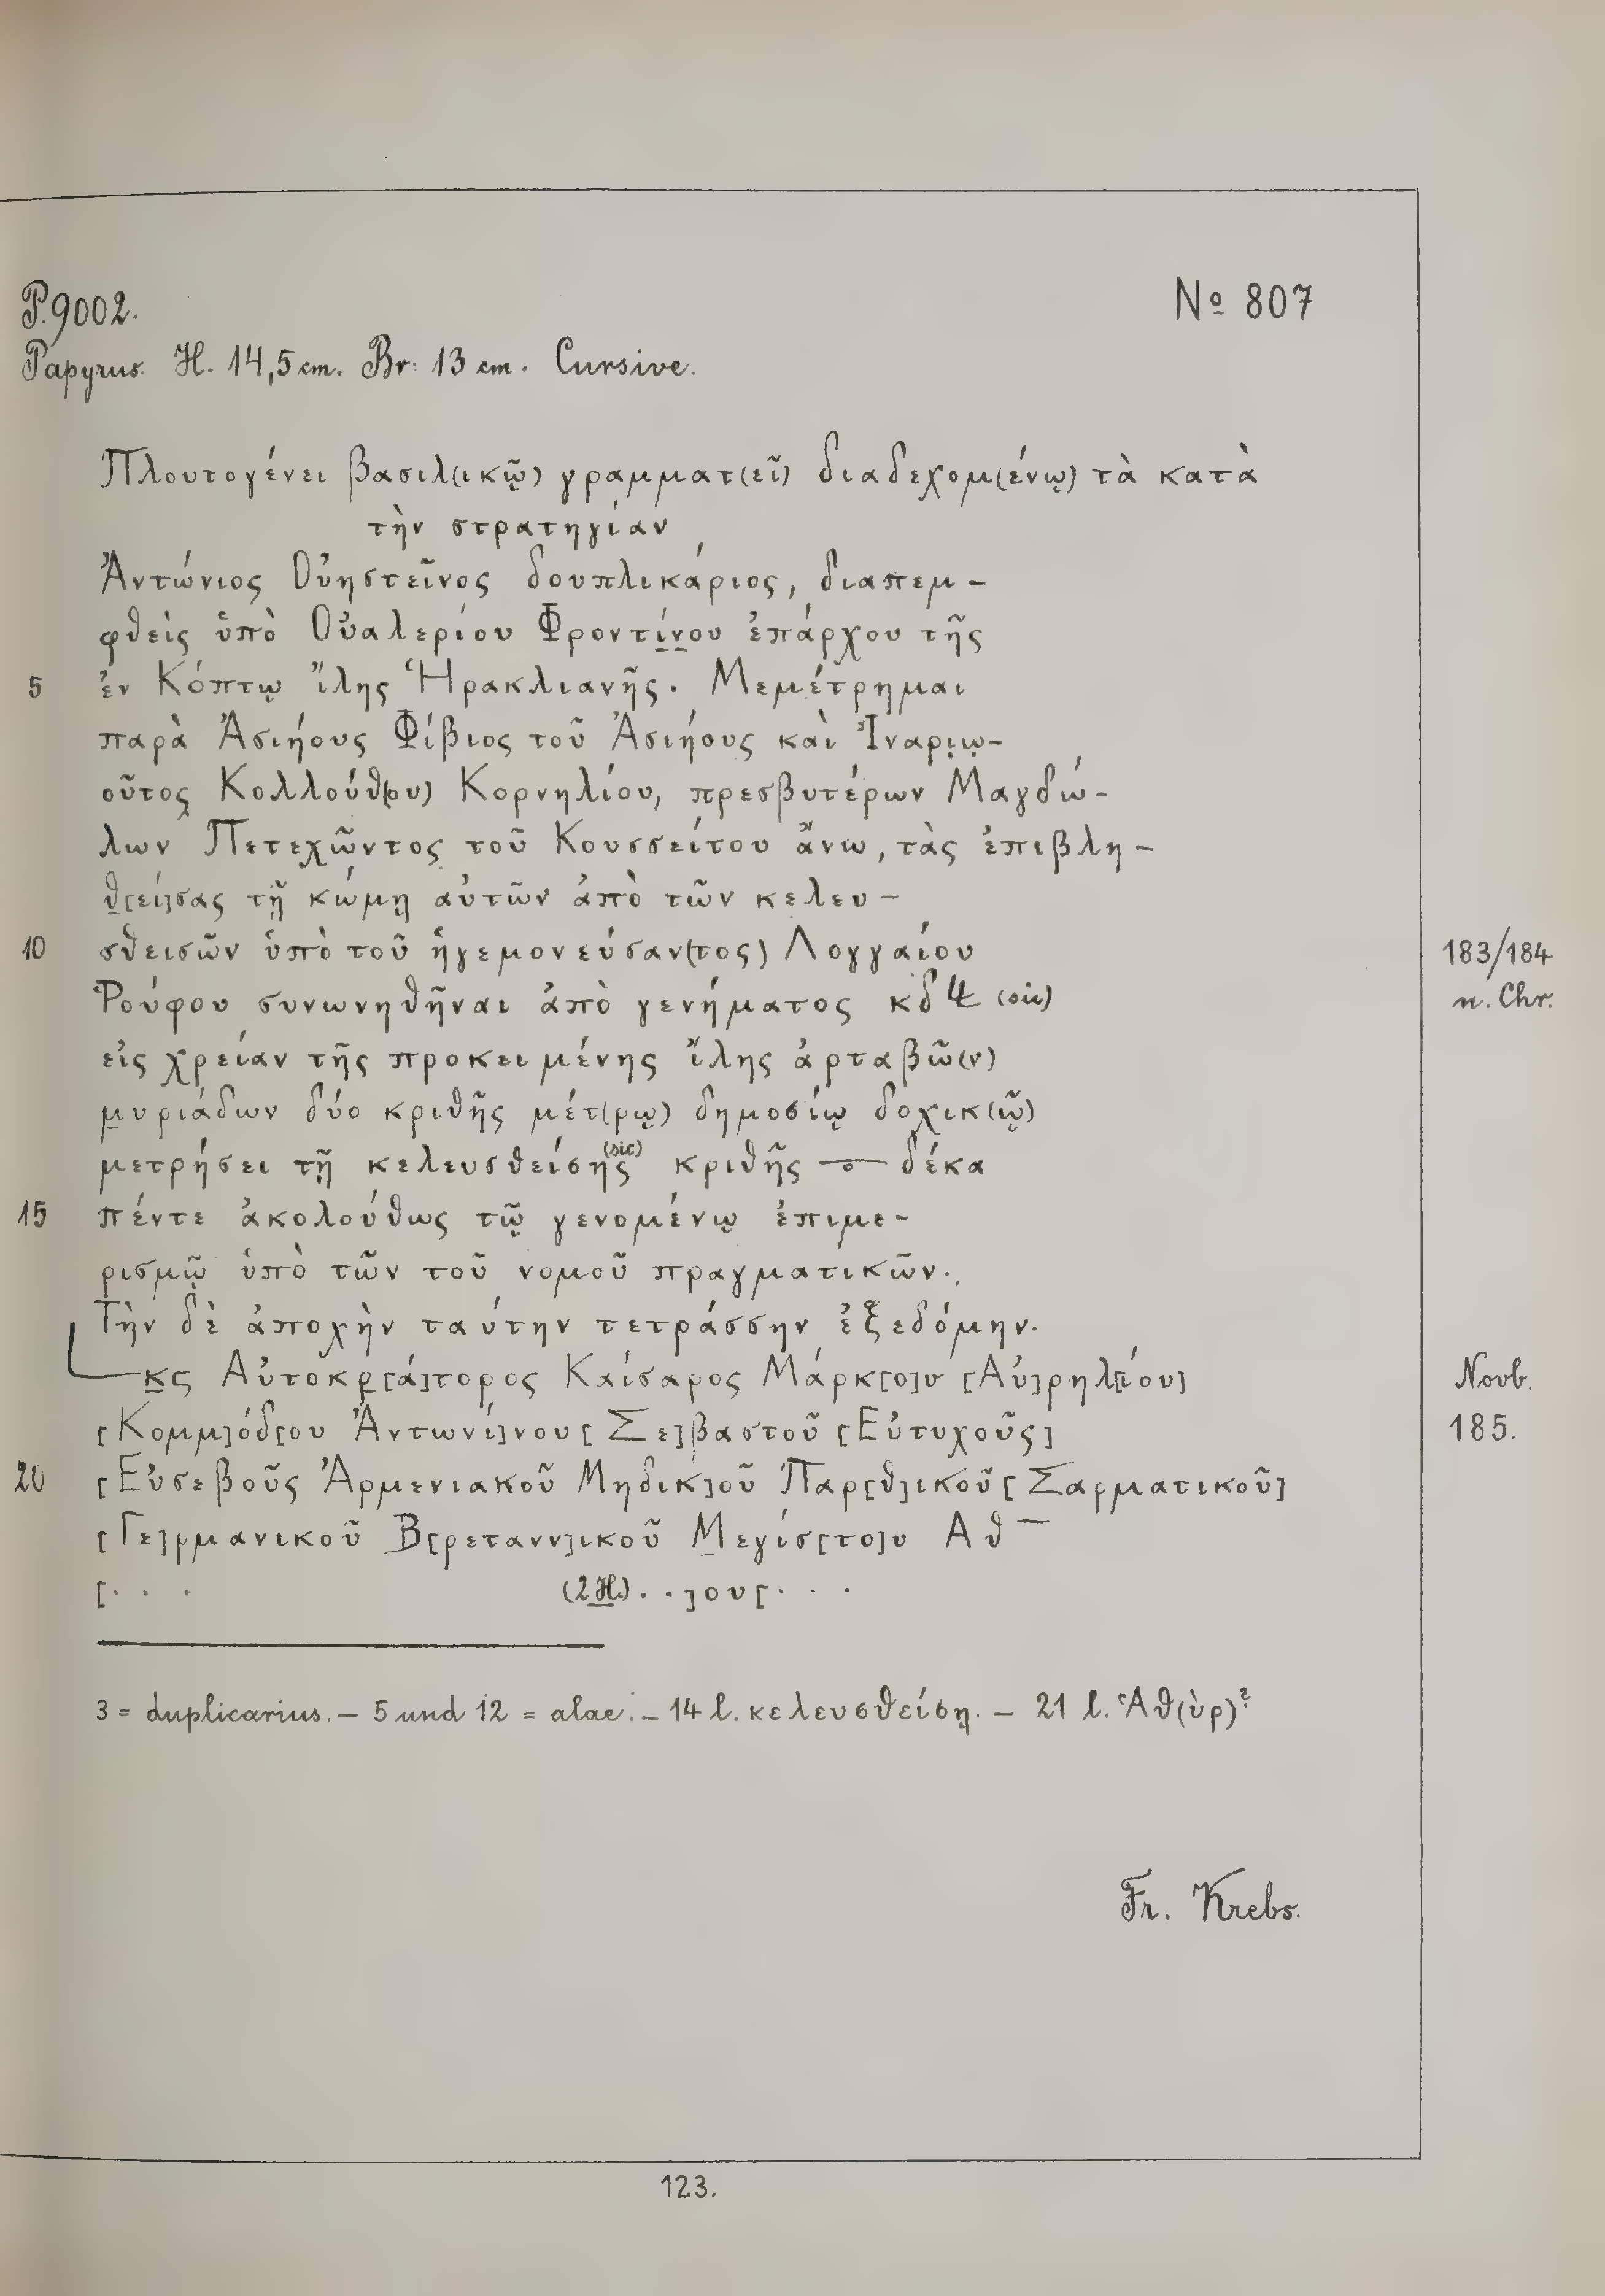 P. 9002.
№ 807
Papyrus. H. 14,5 cm. Br: 13 cm. Cursive.
Πλουτογένει βασιλ(ικῷ) γραμματ(εῖ) διαδεχομ(ένῳ) τὰ κατὰ
τὴν στρατηγίαν
Ἀντώνιος Οὐηστεῖνος δουπλικάριος, διαπεμ-
φθεὶς ὑπὸ Οὐαλερίου Φροντί̣ν̣ου ἐπάρχου τῆς
5 ἐν Κόπτῳ ἴλης Ἡρακλιανῆς. Μεμέτρημαι
παρὰ Ἀσιήους Φίβιος τοῦ Ἀσιήους καὶ Ἰναρι̣ω̣-
οῦτος Κολλούθ(ου) Κορνηλίου, πρεσβυτέρων Μαγδώ-
λων Πετεχῶντος τοῦ Κουσσείτου ἄνω, τὰς ἐπιβλη-
θ̣[εί]σας τῇ κώμῃ αὐτῶν ἀπὸ τῶν κελευ-
10 σθεισῶν ὑπὸ τοῦ ἡγεμονεύσαν(τος) Λογγαίου
183/184
Ῥούφου συνωνηθῆναι ἀπὸ γενήματος κδ 𐅹 (sic)
n. Chr.
εἰς χρείαν τῆς προκειμένης ἴλης ἀρταβῶ(ν)
μ̣υριάδων δύο κριθῆς μέτ(ρῳ) δημοσίῳ δοχικ(ῷ)
μετρήσει τῇ κελευσθείσης (sic) κριθῆς —ο— δέκα
15 πέντε ἀκολούθως τῷ γενομένῳ ἐπιμε-
ρισμῷ ὑπὸ τῶν τοῦ νομοῦ πραγματικῶν.
Τὴν δὲ ἀποχὴν ταύτην τετράσσην ἐξεδόμην.
L κ̣ς Αὐτοκρ̣[ά]τορος Καίσαρος Μάρκ[ο]υ [Αὐ]ρηλ[ίου]
Novb.
[Κομμ]όδ[ου Ἀντωνί]νου [Σε]βαστοῦ [Εὐτυχοῦς]
185.
20 [Εὐσεβοῦς Ἀρμενιακοῦ Μηδικ]οῦ Παρ[θ]ικοῦ [Σαρματικοῦ]
[Γε]ρμανικοῦ Β[ρετανν]ικοῦ Μ̣εγίσ[το]υ Αθ —
[. . . (2H.) . .]ους[. . .
3 = duplicarius. — 5 und 12 = alae. — 14 l. κελευσθείσῃ. — 21 l. Ἁθ(ὺρ)?
Fr. Krebs.
123.